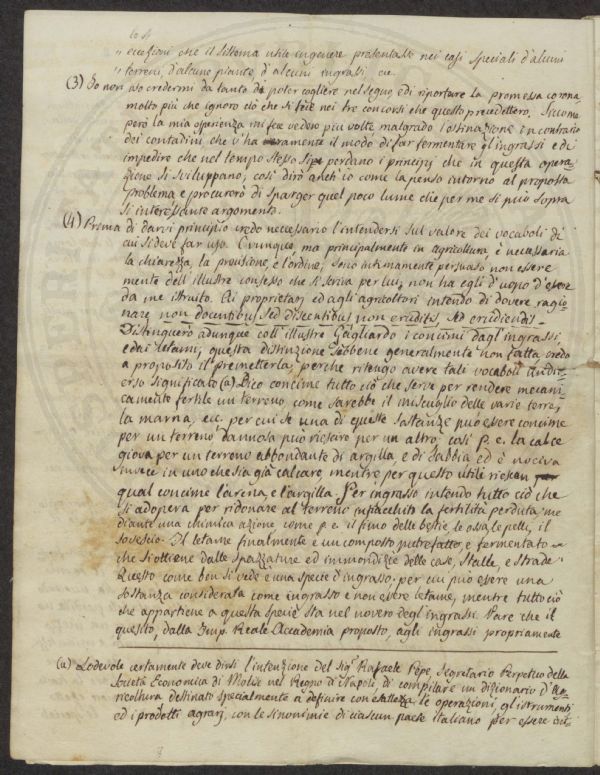 lo st
„ ecezioni che il sistema utile in genere presentasse nei casi speciali d'alcuni
„ terreni, d'alcune piante, d'alcuni ingrassi, ec.
(3) Io non oso credermi da tanto di poter cogliere nel segno, e di riportare la promessa corona,
molto più che ignoro ciò che si fece nei tre concorsi che questo precedettero. Siccome
però la mia esperienza mi fece vedere più volte malgrado l'ostinazione in contrario
dei contadini, che v'ha veramente il modo di far fermentare gl'ingrassi e di
impedire che nel tempo stesso si perdano i principj che in questa opera-
zione si sviluppano; così dirò anch'io come la penso intorno al proposto
Problema e procurerò di sparger quel poco lume che per me si può sopra
sì interessante argomento.
(4) Prima di darvi principio credo necessario l'intendersi sul valore dei vocaboli di
cui si deve far uso. Ovunque, ma principalmente in agricoltura, è necessaria
la chiarezza, la precisione, e l'ordine; sono intimamente persuaso non essere
mente dell'illustre consesso che si scriva per lui, non ha egli d'uopo d'essere
da me istruito. Ai proprietarj ed agli agricoltori intendo di dovere ragio-
nare non docentibus sed discentibus non eruditis, sed erudiendis.
Distinguerò adunque coll'illustre Gagliardo i concimi dagl'ingrassi,
e dai letami; questa distinzione sebbene generalmente non fatta credo
a proposito il premetterla, perchè ritengo avere tale vocaboli un di-
verso significato (a). Dico concime tutto ciò che serve per rendere mecani-
camente fertile un terreno, come sarebbe il miscuglio delle varie terre,
la marna, ecc. per cui se una di queste sostanze può essere concime
per un terreno dannosa può riescire per un altro; così p. e. la calce
giova per un terreno abbondante di argilla e di sabbia ed è nociva
invece in uno che sia già calcare, mentre per questo utile riescon
qual concime l'arena, e l'argilla. Per ingrasso intendo tutto ciò che
si adopera per ridonare al terreno infiacchito la fertilità perduta me-
diante una chimica azione, come p. e. il fimo delle bestie, le ossa, le pelli, il
sovescio. Il letame finalmente è un composto putrefatto, e fermentato
che si ottiene dalle spazzature ed immondizie delle case, stalle, e strade.
Questo come ben si vede è una specie d'ingrasso, per cui può essere una
sostanza considerata come ingrasso e non essere letame, mentre tutto ciò
che appartiene a questa specie sta nel novero degl'ingrassi. Pare che il
quesito, dalla Imp. Reale Accademia proposto, agli ingrassi propriamente
(a) Lodevole certamente deve dirsi l'intenzione del Sigr. Rafaele Pepe, Segretario Perpetuo della
Società Economica di Molise nel Regno di Napoli di compilare un dizionario d'Ag-
ricoltura destinato specialmente a definire con esattezza le operazioni, gl'istrumenti
ed i prodotti agrarj, con le sinonimie di ciascun paese italiano per essere